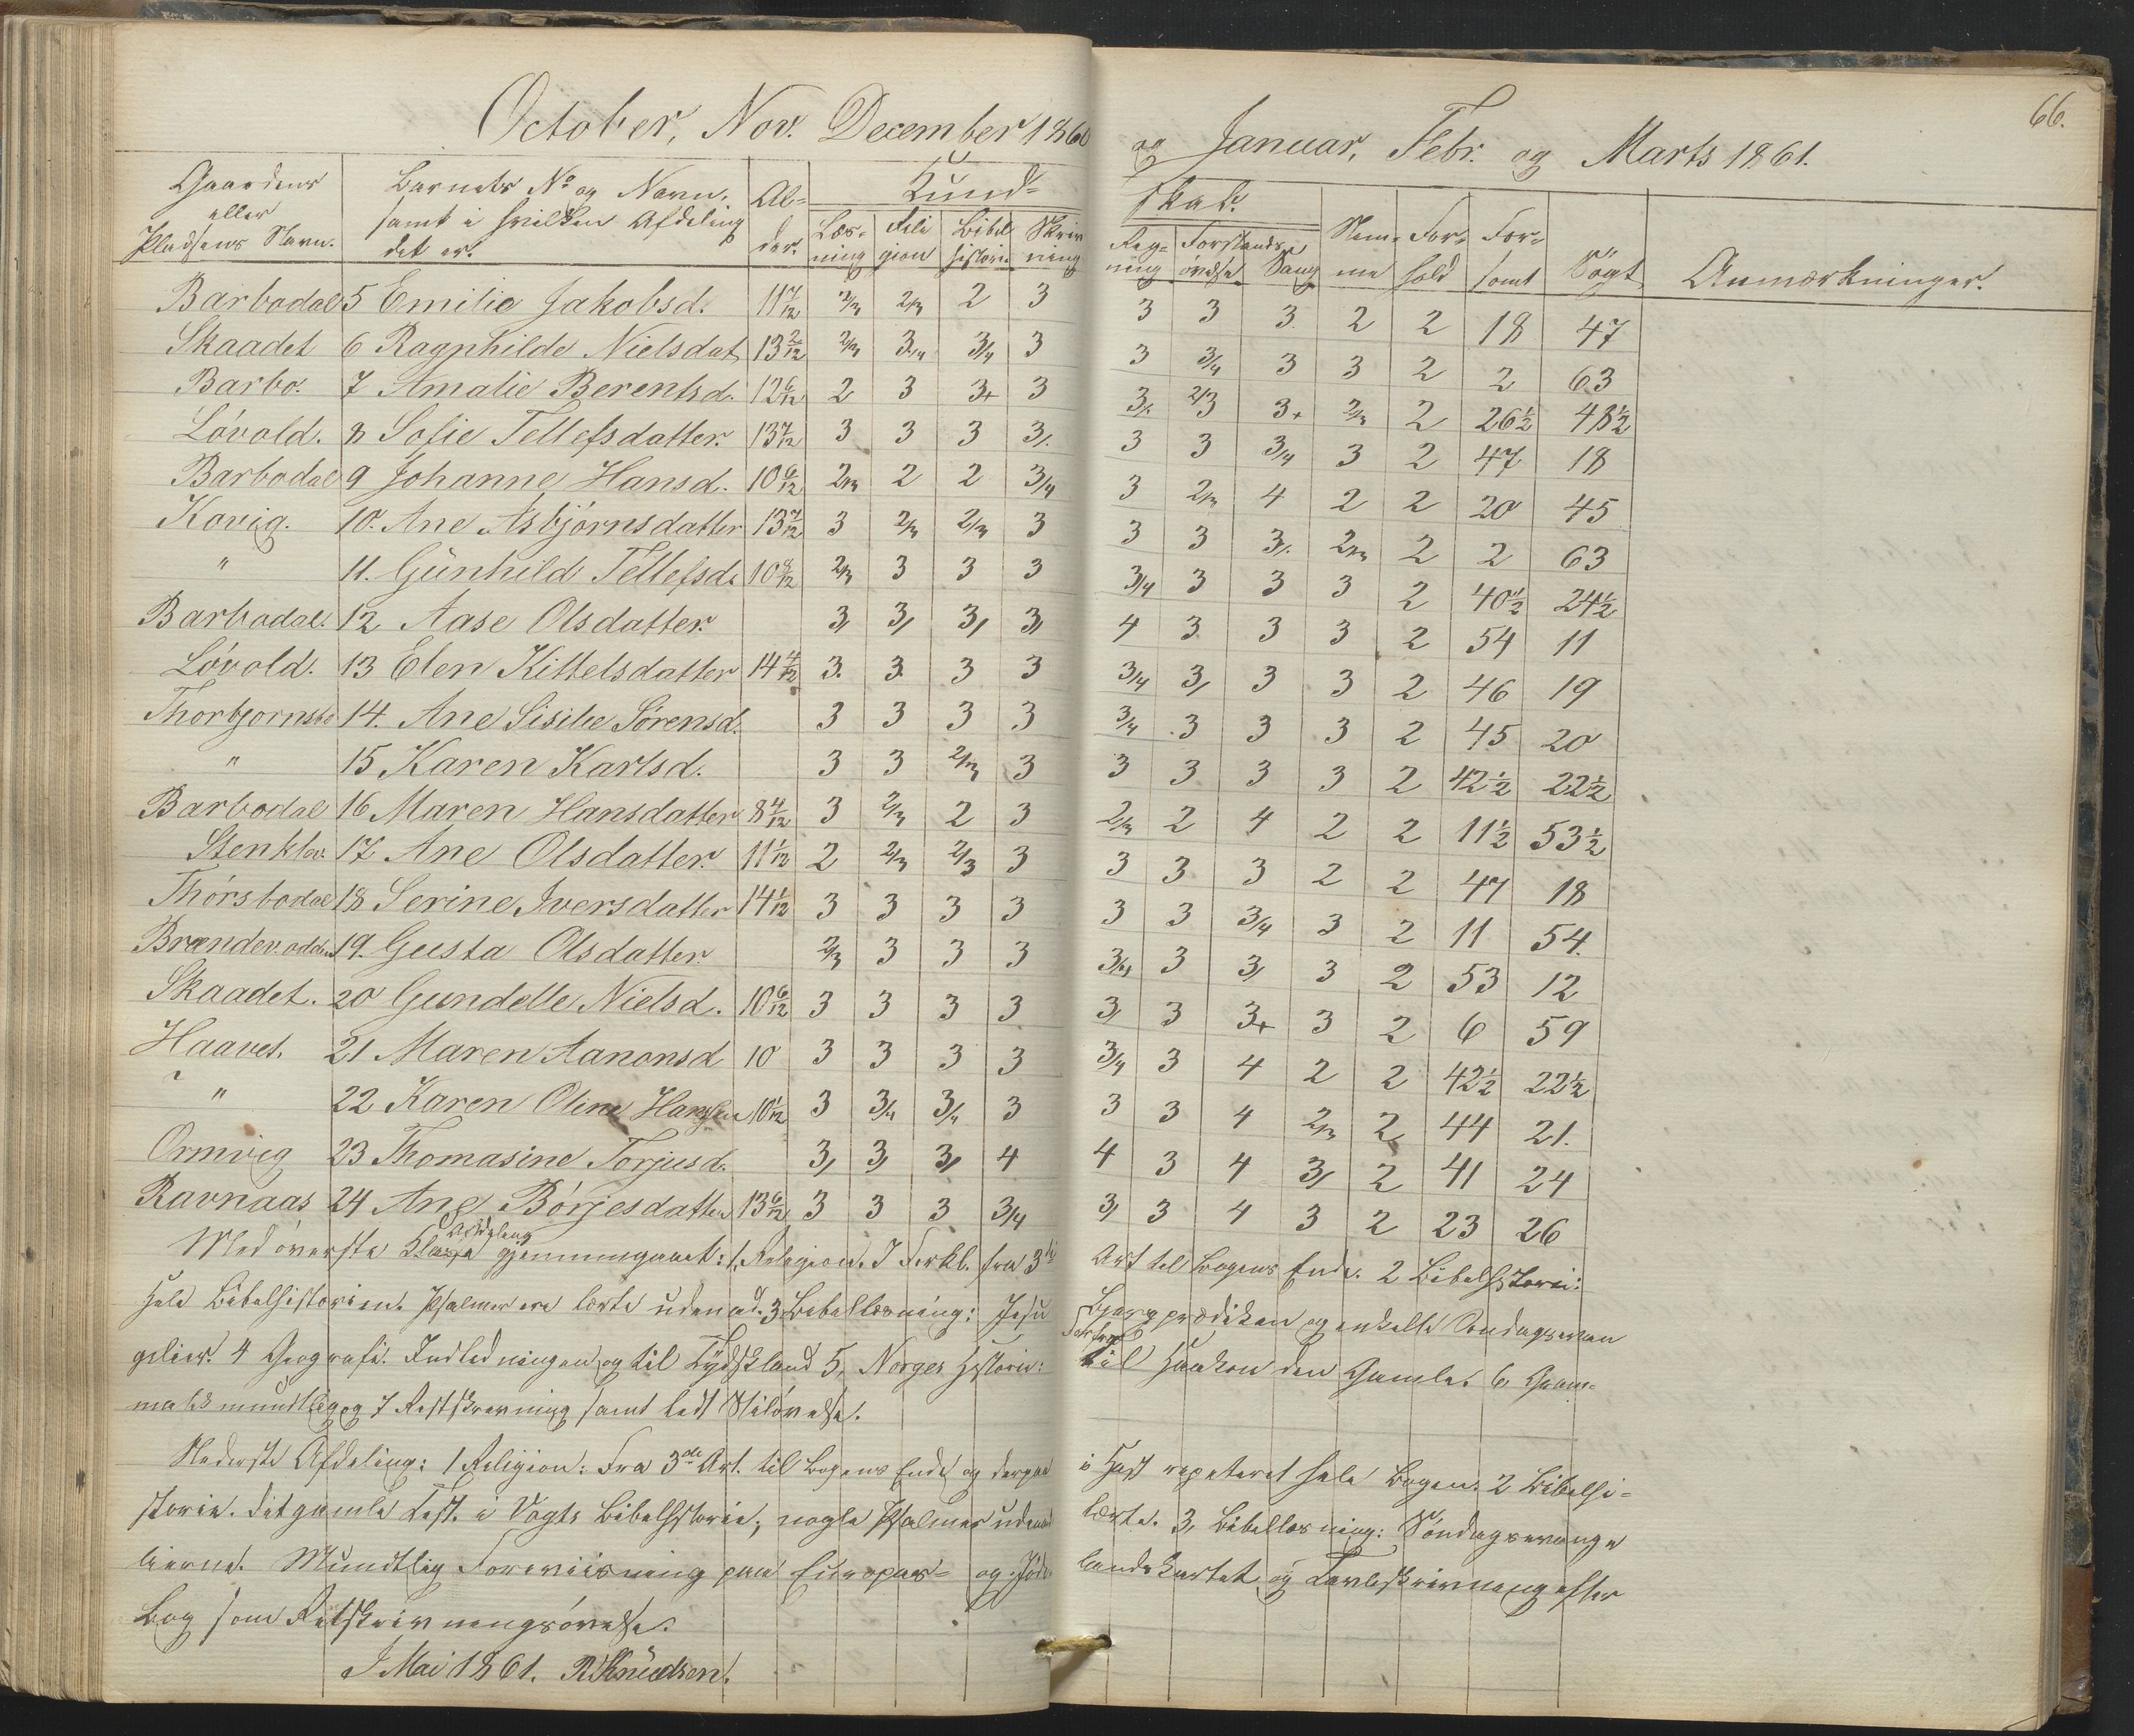 October, Nov. December 1860 og Januar, Febr. og Marts 1861.
66.
Gaardens eller Pladsens Navn. | Barnets No og Navn, samt i hvilken Afdeling det er. | Alder. | Kundskab. | Nemme | Forhold | Forsømt | Søgt | Anmærkninger.
Læsning | Religion | Bibelhistorie | Skrivning | Regning | Forstandsøvelse | Sang
Barbodal 5 Emilie Jakobsd. 11 7/12 2/3 2/3 2 3 3 3 3 2 2 18 47
Skaadet 6 Ragnhilde Nielsdat 13 2/12 2/3 3/4 3/4 3 3 3/4 3 3 2 2 63
Barbo. 7 Amalie Berentsd. 12 6/12 2 3 3+ 3 3/. 2/3 3+ 2/3 2 26½ 48½
Lóvold. 8 Sofie Tellefsdatter. 13 7/12 3 3 3 3/. 3 3 3/4 3 2 47 18
Barbodal 9 Johanne Hansd. 10 6/12 2/3 2 2 3/4 3 2/3 4 2 2 20 45
Kovig. 10. Ane Asbjórnsdatter 13 7/12 3 2/3 2/3 3 3 3 3/. 2/3 2 2 63
" 11. Gunhild Tellefsd. 10 8/12 2/3 3 3 3 3/4 3 3 3 2 40½ 24½
Barbodal. 12 Aase Olsdatter. 3/ 3/ 3/ 3/ 4 3 3 3 2 54 11
Lóvold. 13 Elen Kittelsdatter 14 4/12 3. 3. 3 3 3/4 3/ 3 3 2 46 19
Thorbjornsbo 14. Ane Sisilie Sórensd. 3 3 3 3 3/4 3 3 3 2 45 20
" 15 Karen Karlsd. 3 3 2/3 3 3 3 3 3 2 42½ 22½
Barbodal 16 Maren Hansdatter 8 4/12 3 2/3 2 3 2/3 2 4 2 2 11½ 53½
Stenklev. 17 Ane Olsdatter. 11 1/12 2 2/3 2/3 3 3 3 3 2 2 47 18
Thórsbodal 18 Serine Iversdatter 14 1/12 3 3 3 3 3 3 3/4 3 2 11 54.
Brændev.odden 19. Gusta Olsdatter. 2/3 3 3 3 3/4 3 3/ 3 2 53 12
Skaadet. 20 Gundelle Nielsd. 10 6/12 3 3 3 3 3/ 3 3+ 3 2 6 59
Haavet. 21 Maren Aanonsd 10 3 3 3 3 3/4 3 4 2 2 42½ 22½
" 22 Karen Oline Hansen 10 1/12 3 3/4 3/4 3 3 3 4 2/3 2 44 21.
Ormvig 23 Thomasine Torjusd. 3/ 3/ 3/ 4 4 3 4 3/ 2 41 24
Ravnaas 24 Ane Bórjesdatter 13 6/12 3 3 3 3/4 3/ 3 4 3 2 23 26
Med óverste Afdeling gjennemgaaet: 1. Religion. I Forkl. fra 3die Art til Bogens Ende. 2 Bibelhistorie:
hele Bibelhistorien. Psalmer ere lærte udenad. 3 Bibellæsning: Jesu Bjergprædiken og enkelte Søndagsevan
gelier. 4 Geografi. Indledningen og til Tydskland 5, Norges Historie: til Haakon den Gamle. 6 Gram-
matik mundtlig og 7 Retskrivning samt lidt Stilóvelse.
Nederste Afdeling: 1 Religion: Fra 3die Art. til Bogens Ende og derpaa i Høst repeteret hele Bogen. 2 Bibelhi-
storie. Det gamle Test. i Vogts Bibelhistorie; nogle Psalmer udenad lærte. 3, Bibellæsning: Søndagsevange
lierne. Mundtlig Foreviisning paa Europas- og Jóde landskartet og Tavleskrivning efter
Bog som Retskrivningsóvelse.
I Mai 1861. R Knudsen.